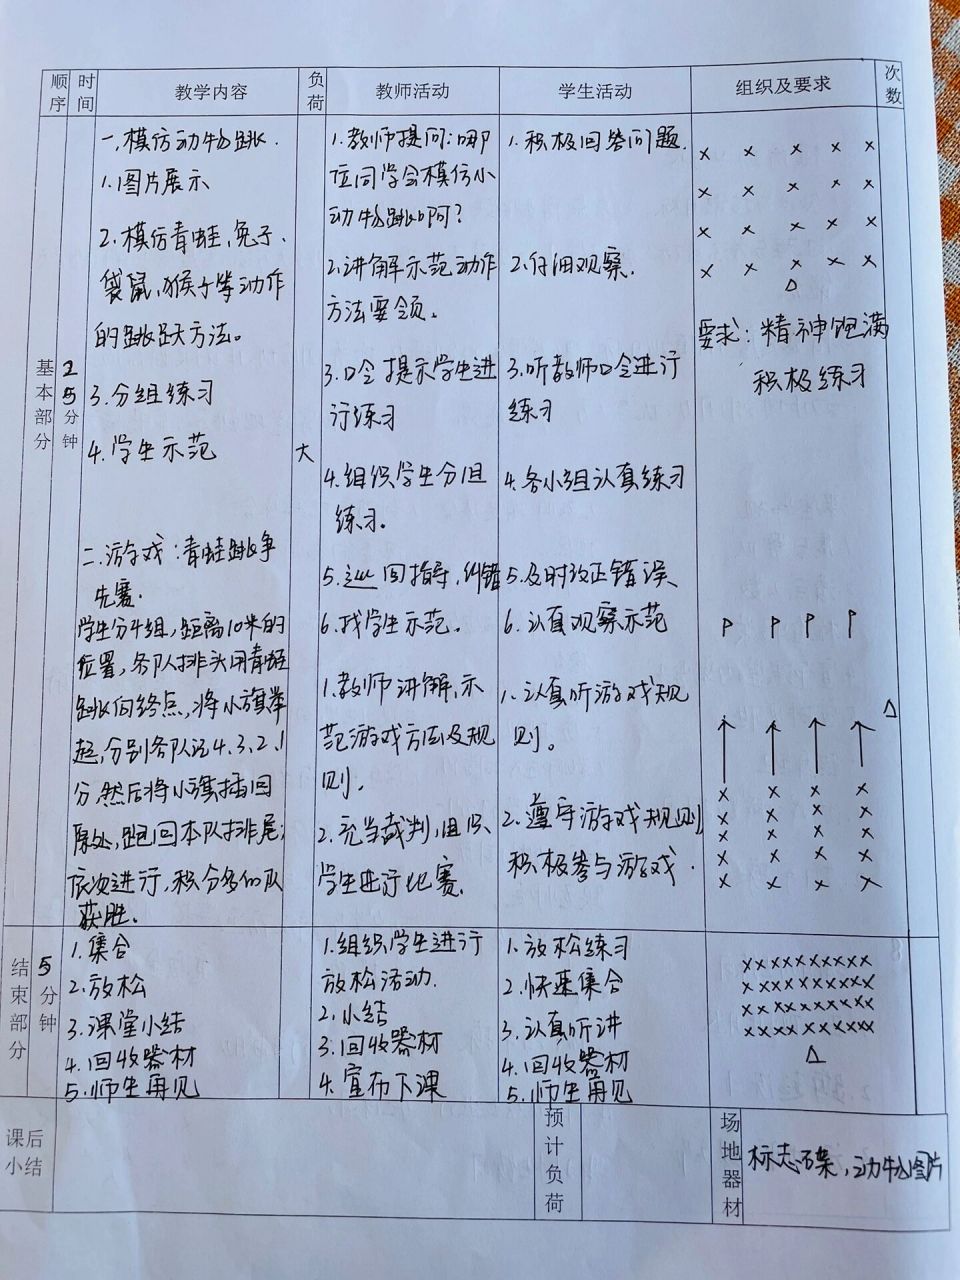 顺序 时间 教学内容 负荷 教师活动 学生活动 组织及要求 次数
基本部分
25分钟
一、模仿动物跳.
1.图片展示
2.模仿青蛙,兔子、
袋鼠,猴子等动作
的跳跃方法。
3.分组练习
4.学生示范
二.游戏:青蛙跳争
先赛.
学生分4组,距离10米的
位置,各队排头用青蛙
跳向终点,将小旗举
起,分别各队记4.3.2.1
分,然后将小旗插回
原处,跑回本队排尾;
依次进行,积分多的队
获胜.
大
1.教师提问:哪
位同学会模仿小
动物跳啊?
2.讲解示范动作
方法要领。
3.口令提示学生进
行练习
4.组织学生分组
练习.
5.巡回指导,纠错
6.找学生示范.
1.教师讲解,示
范游戏方法及规
则.
2.充当裁判,组织
学生进行比赛.
1.积极回答问题.
2.仔细观察.
3.听教师口令进行
练习
4.各小组认真练习
5.及时改正错误
6.认真观察示范
1.认真听游戏规
则。
2.遵守游戏规则
积极参与游戏.
× × × × ×
× × × × ×
× × × × ×
× × × × ×
△
要求:精神饱满
积极练习
P P P P
△
× × × ×
× × × ×
× × × ×
× × × ×
× × × ×
结束部分
5分钟
1.集合
2.放松
3.课堂小结
4.回收器材
5.师生再见
1.组织学生进行
放松活动.
2.小结
3.回收器材
4.宣布下课
1.放松练习
2.快速集合
3.认真听讲
4.回收器材
5.师生再见
××××××××××
××××××××××
××××××××××
××××××××××
△
课后
小结
预计负荷
场地器材
标志碟,动物图片